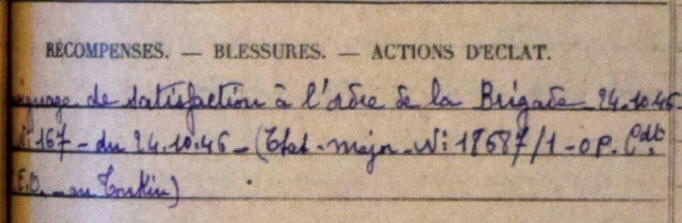 RÉCOMPENSES. — BLESSURES. — ACTIONS D'ECLAT.
de satisfaction à l'ordre de la Brigade 24.10.46
N: 167 - du 24.10.46 - (Etat-major - N: 18687/1-OP. Cdt.
E.O. - au Tonkin)